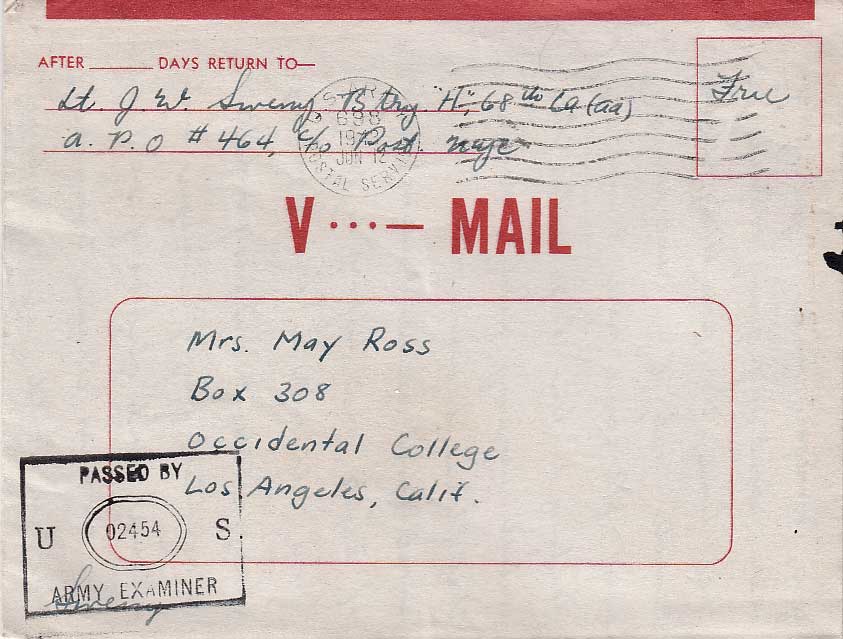 AFTER ______ DAYS RETURN TO—
Lt. J. W. Sweny Btry "H", 68th Ca (aa)
a. P. O # 464, c/o Post. nyc
Free
U.S. ARMY
698
JUN 12
POSTAL SERVICE
V ···— MAIL
Mrs. May Ross
Box 308
Occidental College
Los Angeles, Calif.
PASSED BY
U 02454 S.
ARMY EXAMINER
Sweny